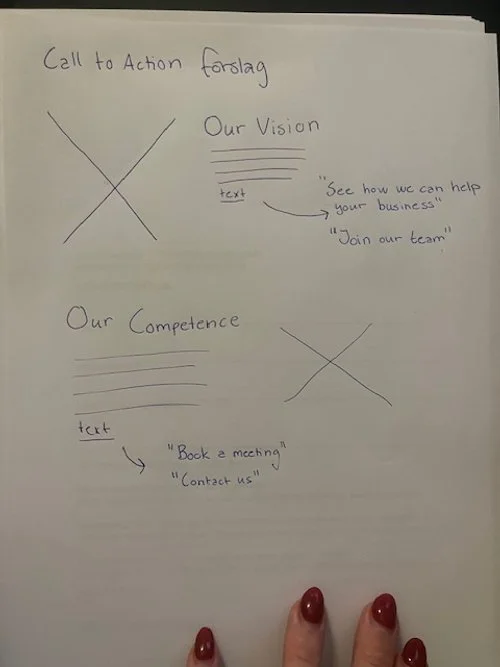 Call to Action forslag
Our Vision
text
"See how we can help
your business"
"Join our team"
Our Competence
text
"Book a meeting"
"Contact us"